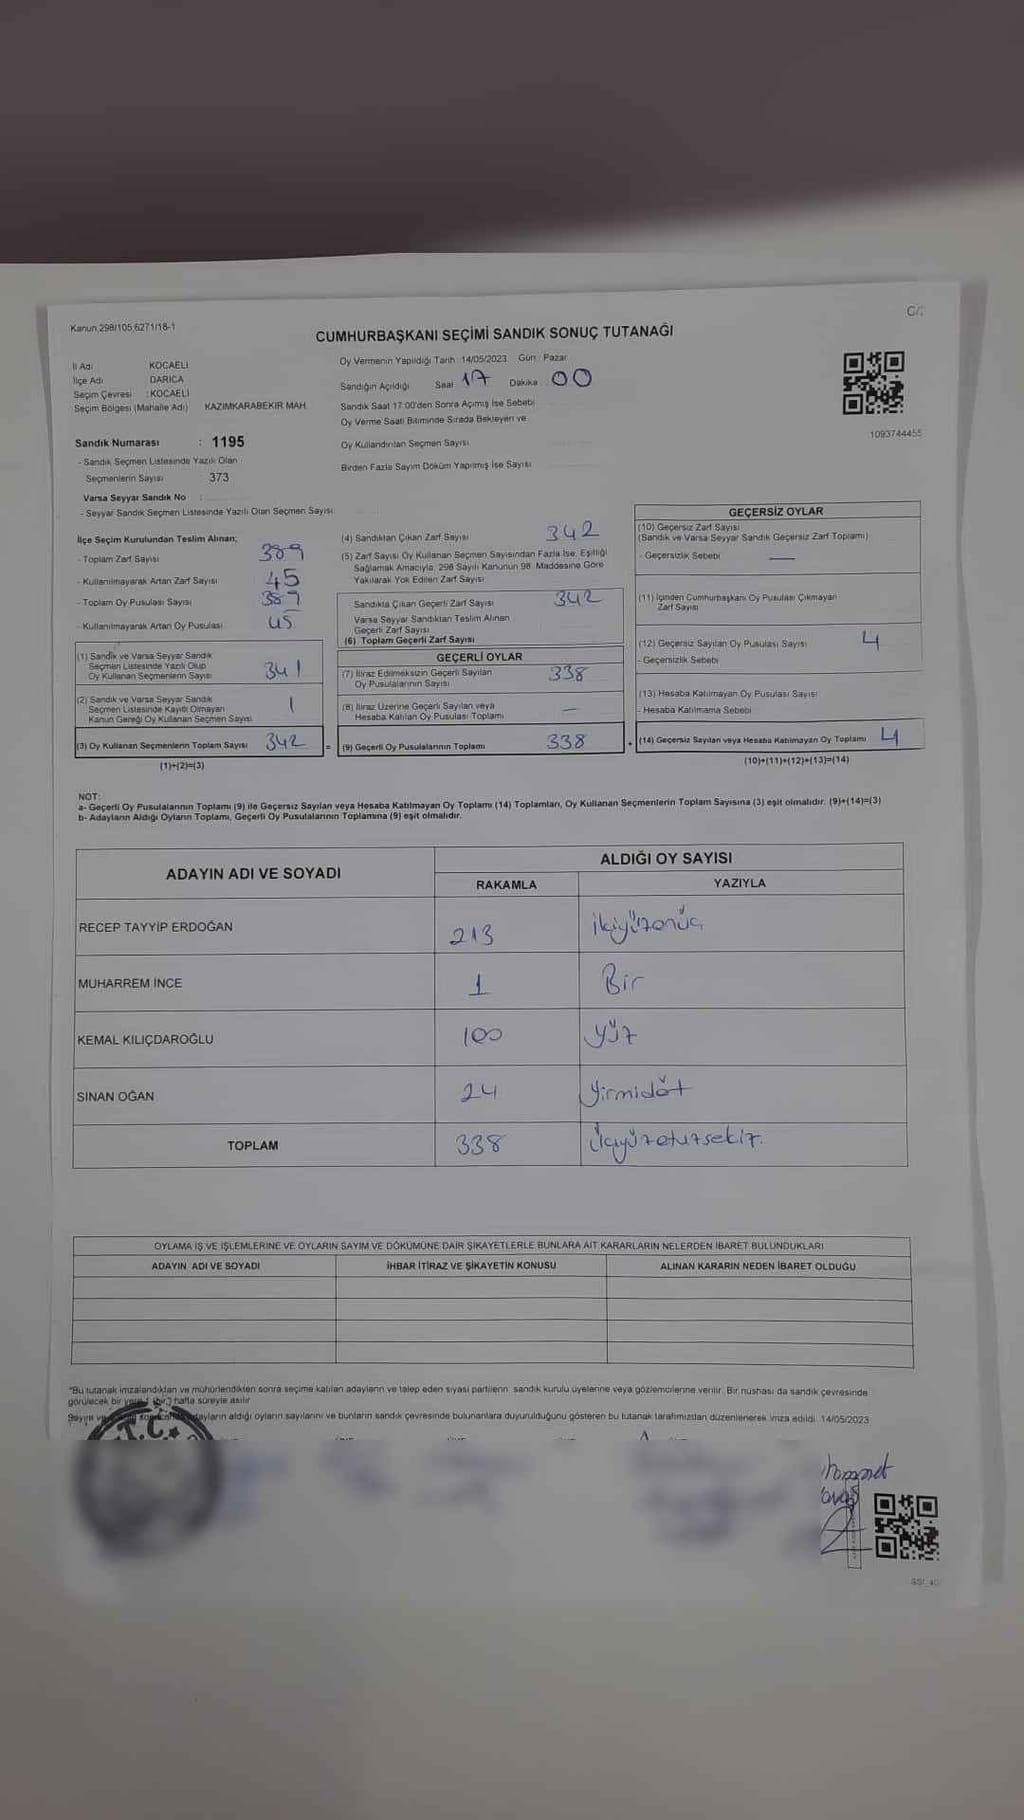 Kanun 298/105,6271/18-1
C/
CUMHURBAŞKANI SEÇİMİ SANDIK SONUÇ TUTANAĞI
İl Adı KOCAELİ
İlçe Adı DARICA
Seçim Çevresi : KOCAELİ
Seçim Bölgesi (Mahalle Adı) KAZIMKARABEKİR MAH.
Oy Vermenin Yapıldığı Tarih 14/05/2023 Gün Pazar
Sandığın Açıldığı Saat 17 Dakika 00
Sandık Saat 17:00'den Sonra Açımış İse Sebebi
Oy Verme Saati Bitiminde Sırada Bekleyen ve
Oy Kullandırılan Seçmen Sayısı
Birden Fazla Sayım Döküm Yapılmış İse Sayısı
1093744455
Sandık Numarası : 1195
- Sandık Seçmen Listesinde Yazılı Olan
Seçmenlerin Sayısı 373
Varsa Seyyar Sandık No :
- Seyyar Sandık Seçmen Listesinde Yazılı Olan Seçmen Sayısı
İlçe Seçim Kurulundan Teslim Alınan;
- Toplam Zarf Sayısı 389
- Kullanılmayarak Artan Zarf Sayısı 45
- Toplam Oy Pusulası Sayısı 389
- Kullanılmayarak Artan Oy Pusulası 45
(1) Sandık ve Varsa Seyyar Sandık
Seçmen Listesinde Yazılı Olup
Oy Kullanan Seçmenlerin Sayısı 341
(2) Sandık ve Varsa Seyyar Sandık
Seçmen Listesinde Kayıtlı Olmayan
Kanun Gereği Oy Kullanan Seçmen Sayısı 1
(3) Oy Kullanan Seçmenlerin Toplam Sayısı 342 =
(1)+(2)=(3)
(4) Sandıktan Çıkan Zarf Sayısı 342
(5) Zarf Sayısı Oy Kullanan Seçmen Sayısından Fazla İse, Eşitliği
Sağlamak Amacıyla, 298 Sayılı Kanunun 98. Maddesine Göre
Yakılarak Yok Edilen Zarf Sayısı
Sandıkta Çıkan Geçerli Zarf Sayısı 342
Varsa Seyyar Sandıktan Teslim Alınan
Geçerli Zarf Sayısı
(6) Toplam Geçerli Zarf Sayısı
GEÇERLİ OYLAR
(7) İtiraz Edilmeksizin Geçerli Sayılan
Oy Pusulalarının Sayısı 338
(8) İtiraz Üzerine Geçerli Sayılan veya
Hesaba Katılan Oy Pusulası Toplamı —
(9) Geçerli Oy Pusulalarının Toplamı 338 +
GEÇERSİZ OYLAR
(10) Geçersiz Zarf Sayısı
(Sandık ve Varsa Seyyar Sandık Geçersiz Zarf Toplamı)
- Geçersizlik Sebebi —
(11) İçinden Cumhurbaşkanı Oy Pusulası Çıkmayan
Zarf Sayısı
(12) Geçersiz Sayılan Oy Pusulası Sayısı 4
- Geçersizlik Sebebi
(13) Hesaba Katılmayan Oy Pusulası Sayısı
- Hesaba Katılmama Sebebi
(14) Geçersiz Sayılan veya Hesaba Katılmayan Oy Toplamı 4
(10)+(11)+(12)+(13)=(14)
NOT:
a- Geçerli Oy Pusulalarının Toplamı (9) ile Geçersiz Sayılan veya Hesaba Katılmayan Oy Toplamı (14) Toplamları, Oy Kullanan Seçmenlerin Toplam Sayısına (3) eşit olmalıdır. (9)+(14)=(3)
b- Adayların Aldığı Oyların Toplamı, Geçerli Oy Pusulalarının Toplamına (9) eşit olmalıdır.
ADAYIN ADI VE SOYADI
ALDIĞI OY SAYISI
RAKAMLA YAZIYLA
RECEP TAYYİP ERDOĞAN 213 ikiyüzonüç
MUHARREM İNCE 1 Bir
KEMAL KILIÇDAROĞLU 100 yüz
SİNAN OĞAN 24 yirmidöt
TOPLAM 338 üçyüzotuzsekiz.
OYLAMA İŞ VE İŞLEMLERİNE VE OYLARIN SAYIM VE DÖKÜMÜNE DAİR ŞİKAYETLERLE BUNLARA AİT KARARLARIN NELERDEN İBARET BULUNDUKLARI
ADAYIN ADI VE SOYADI İHBAR İTİRAZ VE ŞİKAYETİN KONUSU ALINAN KARARIN NEDEN İBARET OLDUĞU
"Bu tutanak imzalandıktan ve mühürlendikten sonra seçime katılan adayların ve talep eden siyasi partilerin sandık kurulu üyelerine veya gözlemcilerine verilir. Bir nüshası da sandık çevresinde
görülecek bir yere 1 (bir) hafta süreyle asılır
Sayım ve adayların aldığı oyların sayılarını ve bunların sandık çevresinde bulunanlara duyurulduğunu gösteren bu tutanak tarafımızdan düzenlenerek imza edildi. 14/05/2023
T.C.